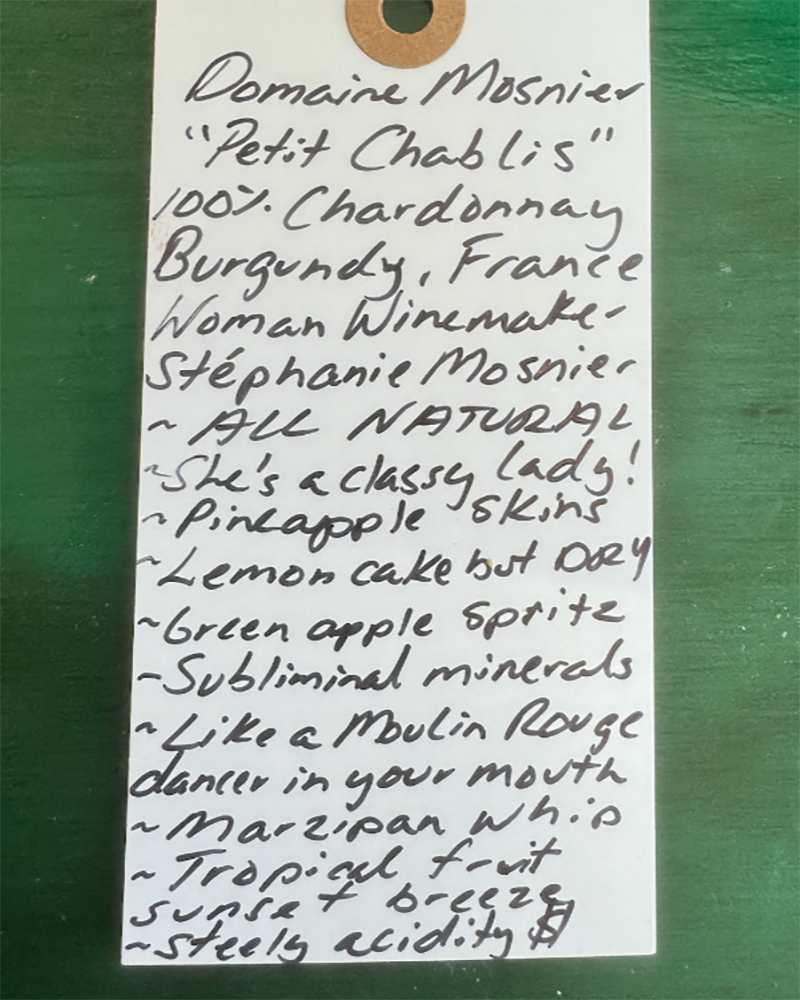 Domaine Mosnier
"Petit Chablis"
100% Chardonnay
Burgundy, France
Woman Winemaker
Stéphanie Mosnier
~ ALL NATURAL
~She's a classy lady!
~Pineapple skins
~Lemon cake but DRY
~Green apple spritz
~Subliminal minerals
~Like a Moulin Rouge
dancer in your mouth
~Marzipan whip
~Tropical fruit
sunset breeze
~steely acidity $